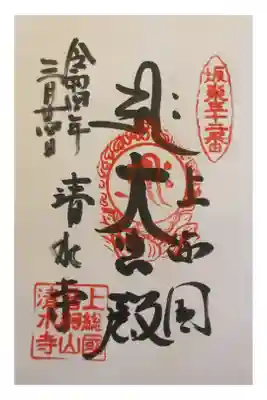 坂東三十二番
上総国
大悲殿
清水寺
令和四年
三月廿四日
上總國
音羽山
清水寺